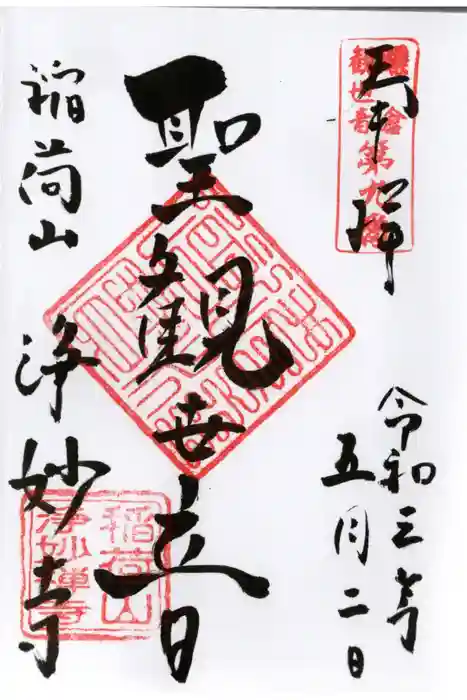 奉拝
鎌倉
観世音
第九番
令和三年
五月二日
聖観世音
稲荷山
浄妙寺
稲荷山
浄妙禅寺